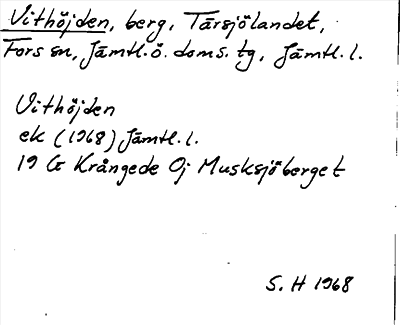 Vithöjden, berg, Tärsjölandet,
Fors sn, Jämtl. ö. doms. tg, Jämtl. l.
Vithöjden
ek (1968) Jämtl. l.
19 G Krångede Oj Musksjöberget
S. H 1968